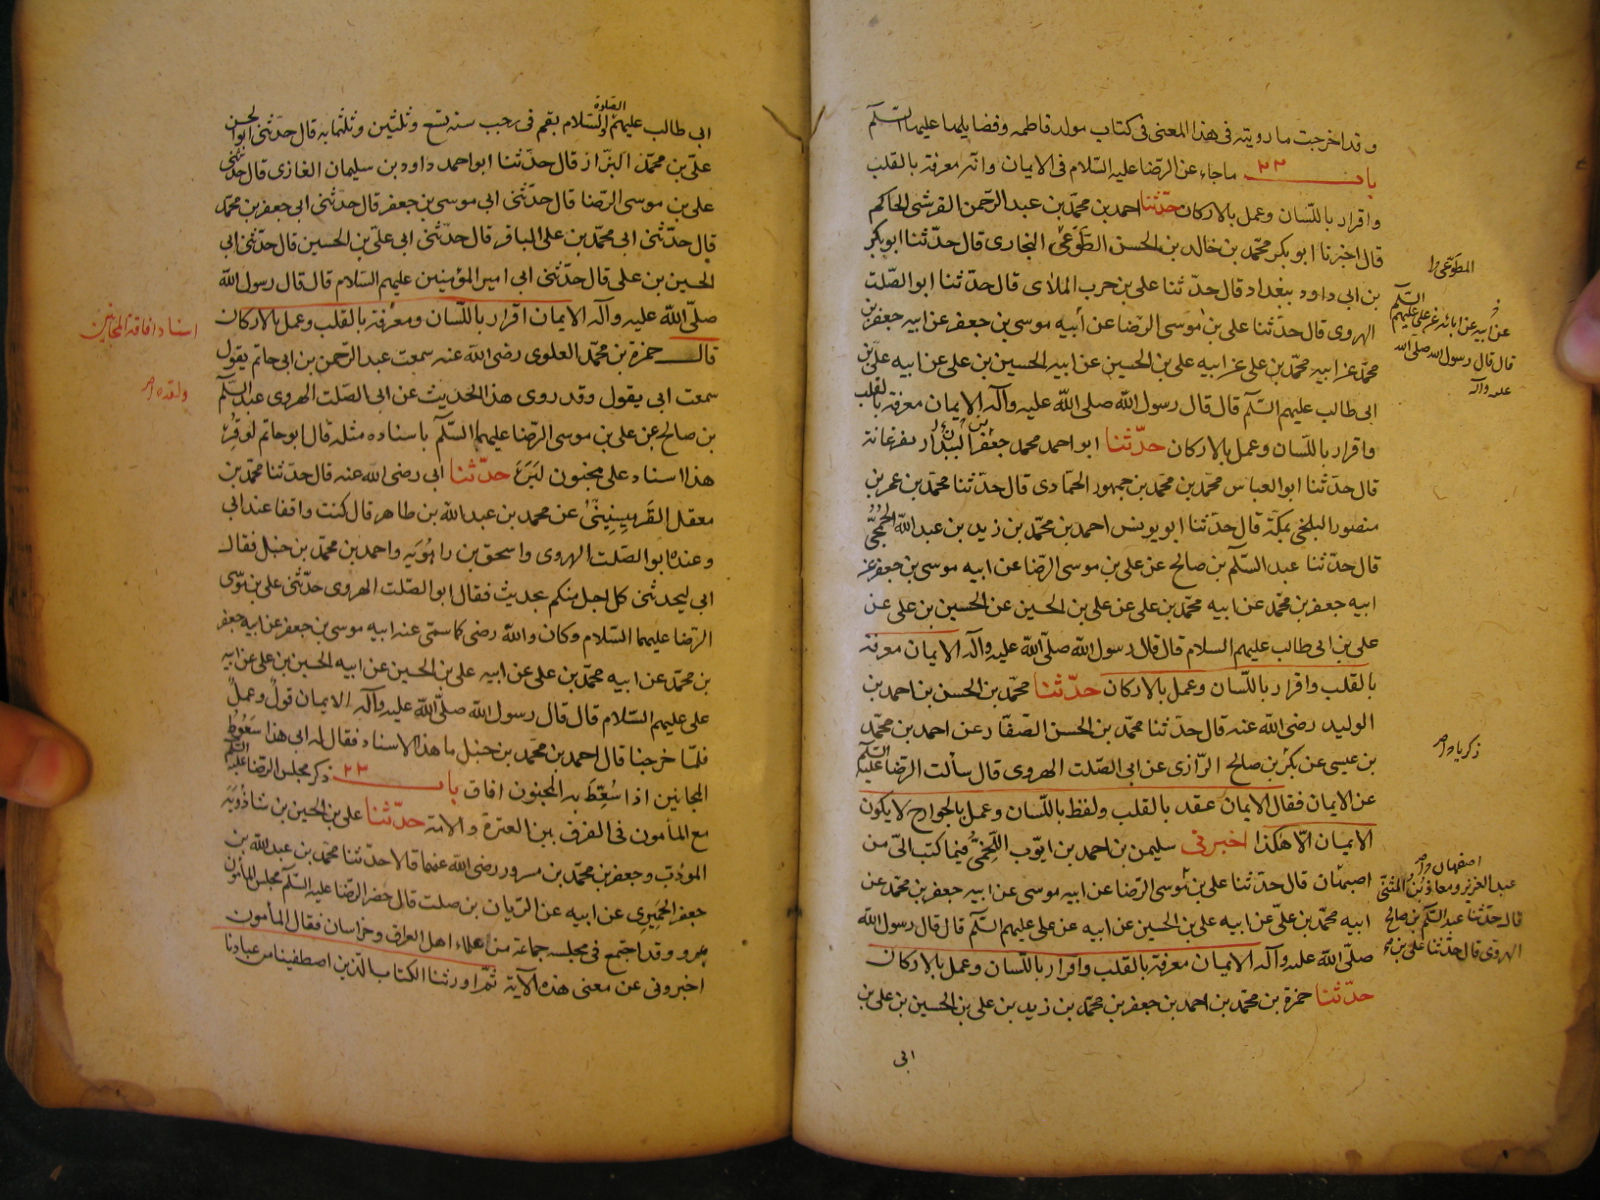 و قد اخرجت ما رويته فى هذا المعنى فى كتاب مولد فاطمه وفضايلها عليها السلم
باب ٢٢ ماجاء عن الرضا عليه السّلام فى الايمان وانه معرفة بالقلب
واقرار باللسان وعمل بالاركان حدّثنا احمد بن محمّد بن عبد الرّحمن القرشى الحاكم
قال اخبرنا ابو بكر محمّد بن خالد بن الحسن الطّوّعى البخارى قال حدّثنا ابوبكر
بن ابى داود ببغداد قال حدّثنا على بن حرب الملاى قال حدّثنا ابو الصّلت
الهروى قال حدّثنا على بن موسى الرضا عن أبيه موسى بن جعفر عن ابيه جعفر بن
محمّد عن ابيه محمّد بن على عن ابيه على بن الحسين عن ابيه الحسين بن على عن ابيه على بن
ابى طالب عليهم السّلم قال قال رسول الله صلى الله عليه وآله الايمان معرفة بالقلب
واقرار باللسان وعمل بالاركان حدّثنا ابو احمد محمد جعفر البندار بفرغانة
قال حدّثنا ابو العباس محمّد بن محمّد بن جمهور الحمّادى قال حدّثنا محمّد بن عمر بن
منصور البلخى بمكّة قال حدّثنا ابو يونس احمد بن محمّد بن زيد بن عبد الله الجُمَحِىّ
قال حدّثنا عبد السّلم بن صالح عن على بن موسى الرّضا عن ابيه موسى بن جعفر عن
ابيه جعفر بن محمّد عن ابيه محمّد بن على عن على بن الحسين عن الحسين بن على عن
على بن ابى طالب عليهم السلام قال قال رسول الله صلّى الله عليه وآله الايمان معرفة
بالقلب واقرار باللسان وعمل بالاركان حدّثنا محمّد بن الحسن بن احمد بن
الوليد رضى الله عنه قال حدّثنا محمّد بن الحسن الصّفّار عن احمد بن محمّد
بن عيسى عن بكر بن صالح الرّازى عن ابى الصّلت الهروى قال سألت الرضا عليه السّلم
عن الايمان فقال الايمان عقد بالقلب ولفظ باللسان وعمل بالجوارح لا يكون
الايمان الّا هكذا اخبرنى سليمن بن احمد بن ايّوب اللّخمىّ فيما كتب الىّ من
اصبهان قال حدّثنا على بن موسى الرضا عن ابيه موسى عن ابيه جعفر بن محمّد عن
ابيه محمّد بن علىّ عن ابيه على بن الحسين عن ابيه عن على عليهم السّلم قال قال رسول الله
صلّى الله عليه وآله الايمان معرفة بالقلب واقرار باللسان وعمل بالاركان
حدّثنا حمزة بن محمّد بن احمد بن جعفر بن محمّد بن زيد بن على بن الحسين بن على بن
ابى
المطوّعى
عن أبيه عن ابائه عن على عليهم السّلم
قال قال رسول الله صلى الله
عليه وآله
زكريا
اصفهان
عبد العزيز ومعاذ بن المثنّى
قال حدّثنا عبد السّلم بن صالح
الهروى قال حدّثنا على بن
ابى طالب عليهم الصّلوة والسّلام بقم فى رجب سنه تسع وثلثين وثلثمايه قال حدّثنى ابو الحسن
على بن محمّد البزّاز قال حدّثنا ابو احمد داود بن سليمان الغازى قال حدّثنى
على بن موسى الرضا قال حدّثنى ابى موسى بن جعفر قال حدّثنى ابى جعفر بن محمّد
قال حدّثنى ابى محمّد بن على الباقر قال حدّثنى ابى على بن الحسين قال حدّثنى ابى
الحسين بن على قال حدّثنى ابى امير المؤمنين عليهم السّلام قال قال رسول الله
صلّى الله عليه وآله الايمان اقرار باللسان ومعرفة بالقلب وعمل بالاركان
قال حمزة بن محمّد العلوى رضى الله عنه سمعت عبد الرّحمن بن ابى حاتم يقول
سمعت ابى يقول وقد روى هذا الحديث عن ابى الصّلت الهروى عبد السّلم
بن صالح عن على بن موسى الرّضا عليهما السّلم باسناده مثله قال ابو حاتم لو قُرِئ
هذا اسناد على مجنون لَبَرَءَ حدّثنا ابى رضى الله عنه قال حدّثنا محمّد بن
معقل القَرمِيسِينِىّ عن محمد بن عبد الله بن طاهر قال كنت واقفا عند ابى
وعنده ابو الصّلت الهروى واسحق بن راهُوَيه واحمد بن محمّد بن حنبل فقال
ابى ليحدثنى كل رجل منكم بحديث فقال ابو الصّلت الهروى حدّثنى على بن موسى
الرّضا عليهما السّلام وكان والله رضى كما سمّى عن ابيه موسى بن جعفر عن ابيه جعفر
بن محمّد عن ابيه محمّد بن على عن ابيه على بن الحسين عن ابيه الحسين بن على عن ابيه
على عليهم السّلام قال قال رسول الله صلّى الله عليه وآله الايمان قولٌ وعملٌ
فلمّا خرجنا قال احمد بن محمّد بن حنبل ما هذا الاسناد فقال له ابى هذا سَعُوطُ
المجانين اذا سُعِّطَ به المجنون افاق باب ٢٣ ذكر مجلس الرضا عليه السّلم
مع المأمون فى الفرق بين العترة والامّة حدّثنا على بن الحسين بن شاذُوَيَه
المؤدّب وجعفر بن محمّد بن مسرور رضى الله عنهما قالا حدّثنا محمّد بن عبد الله بن
جعفر الحِميَرِى عن ابيه عن الرّيان بن صلت قال حضر الرّضا عليه السّلم مجلس المأمون
بمرو وقد اجتمع فى مجلسه جماعة من علماء اهل العراق وخراسان فقال المأمون
اخبرونى عن معنى هذه الآية ثمّ اورثنا الكتاب الّذين اصطفينا من عبادنا
اسناد افاقة المجانين